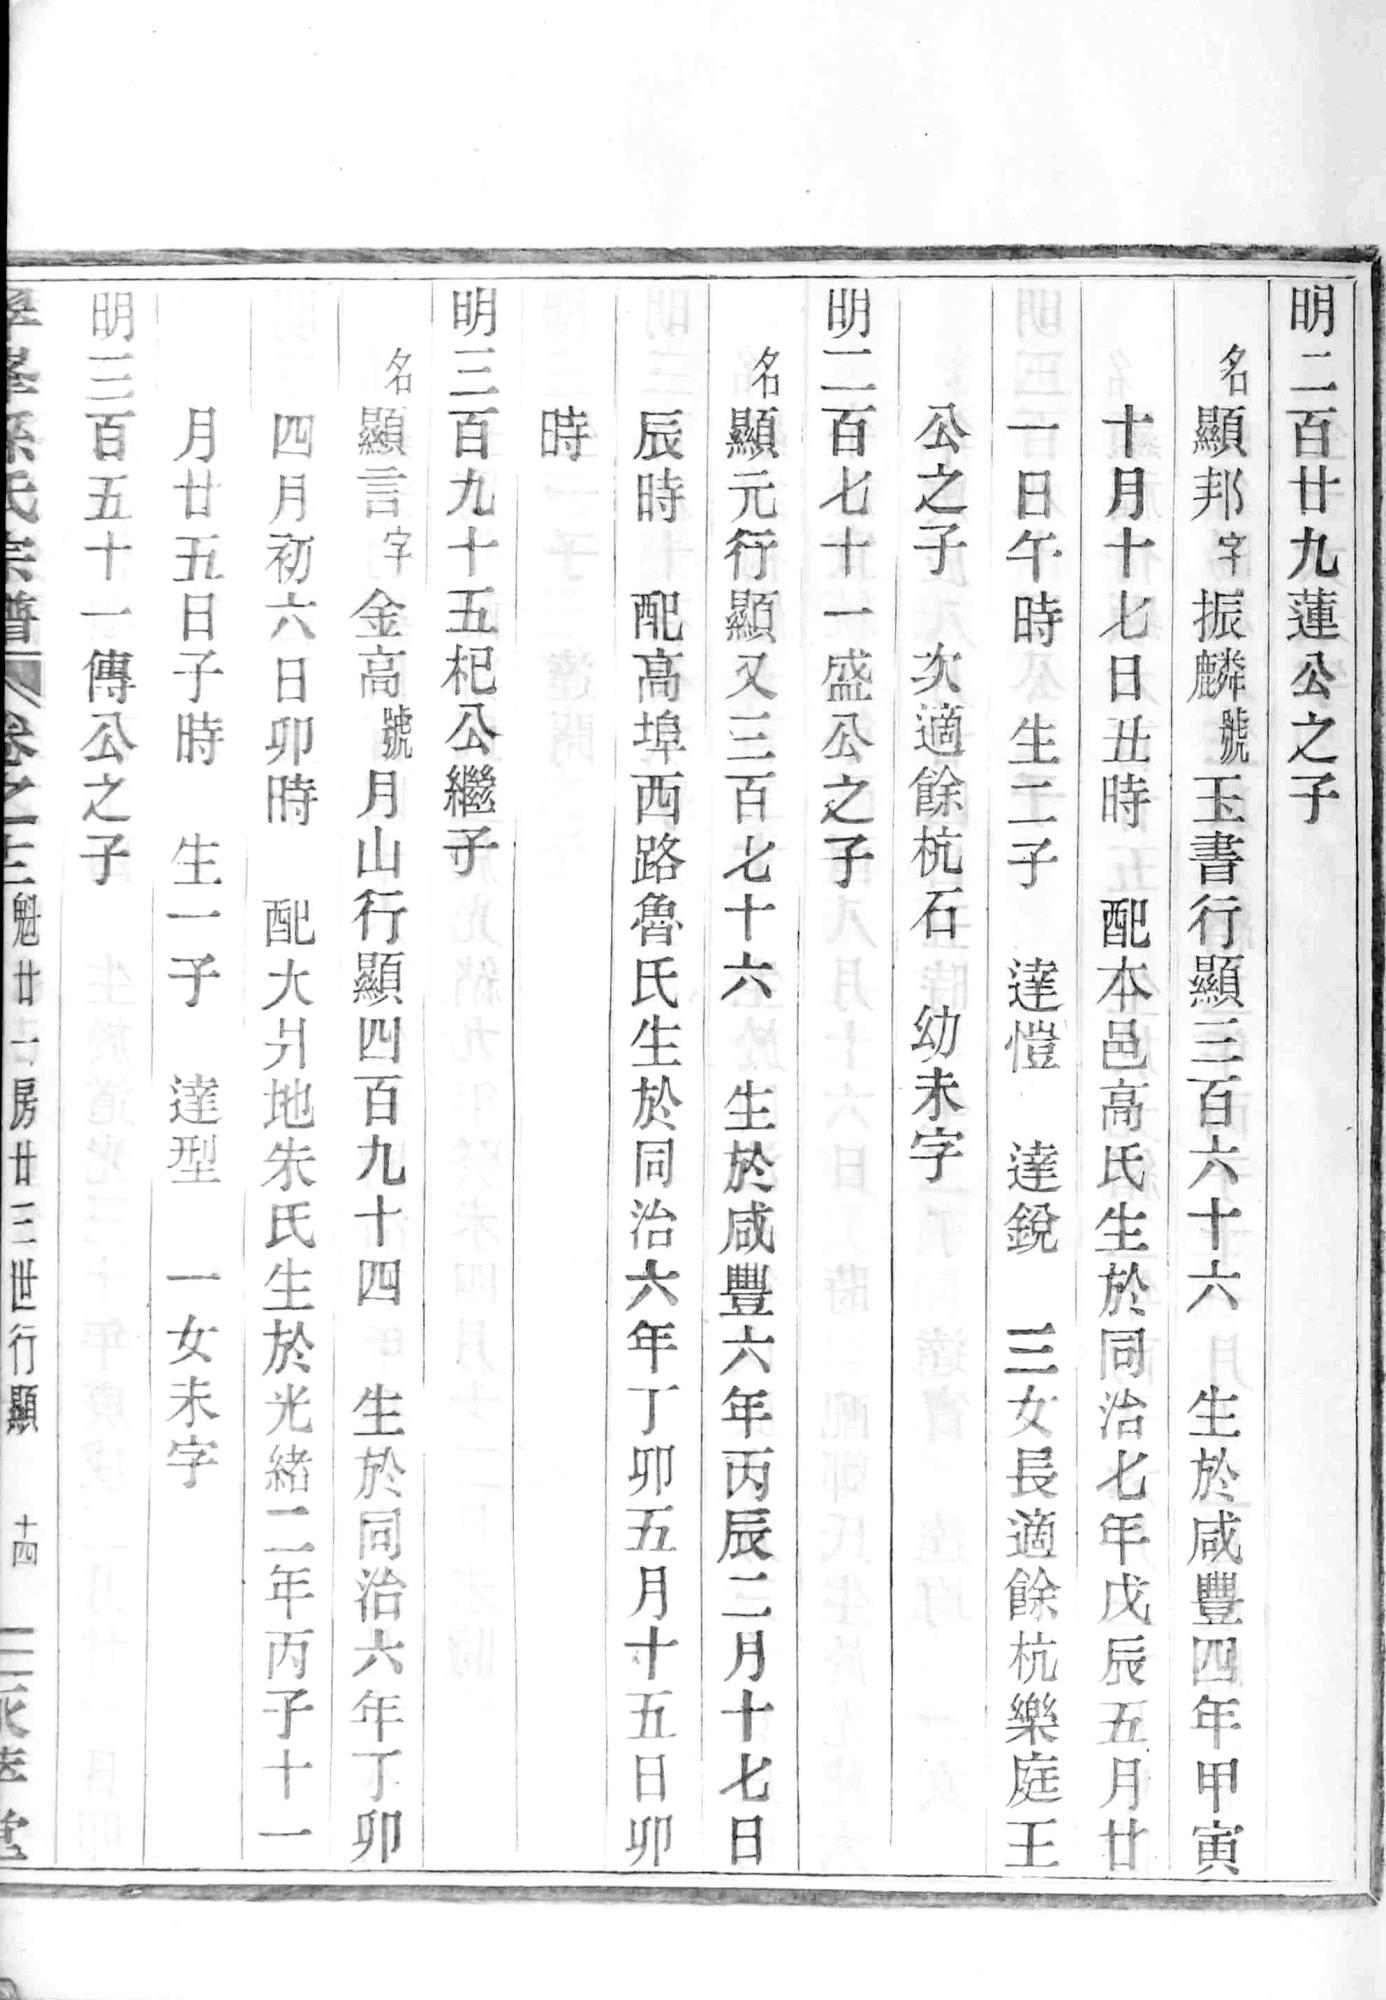 明二百廿九蓮公之子
名顯邦字振麟號玉書行顯三百六十六　生於咸豐四年甲寅
十月十七日丑時　配本邑高氏生於同治七年戊辰五月廿
一日午時　生二子　達愷　達銳　三女長適餘杭樂庭王
公之子　次適餘杭石　幼未字
明二百七十一盛公之子
名顯元行顯又三百七十六　生於咸豐六年丙辰二月十七日
辰時　配高埠西路魯氏生於同治六年丁卯五月十五日卯
時
明三百九十五杞公繼子
名顯言字金高號月山行顯四百九十四　生於同治六年丁卯
四月初六日卯時　配大爿地朱氏生於光緒二年丙子十一
月廿五日子時　生一子　達型　一女未字
明三百五十一傳公之子
孫氏宗譜　卷之三　魁廿一房廿三世行顯　十四　堂